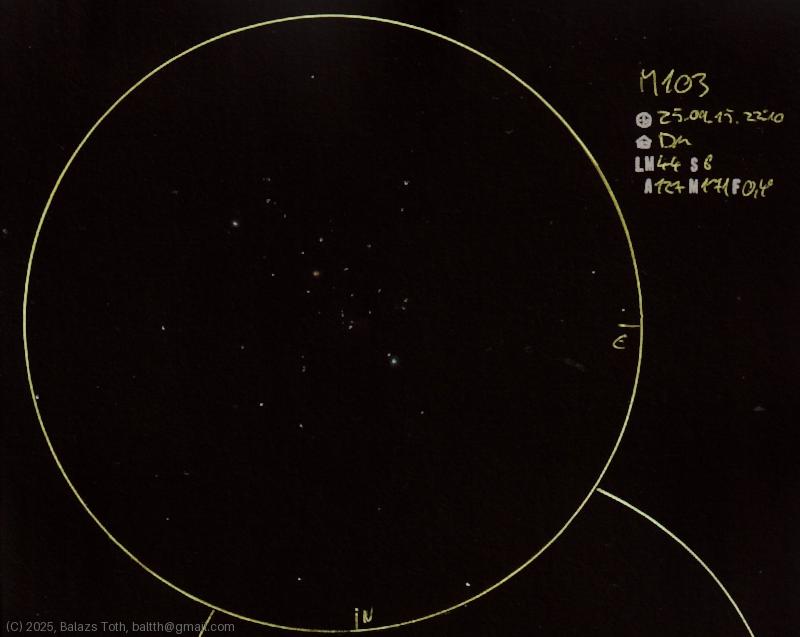 M103
25.09.15. 22:10
Dk
LM 4.4 S 6
A 127 M 171 F 0,4°
E
N
(C) 2025, Balazs Toth, baltth@gmail.com